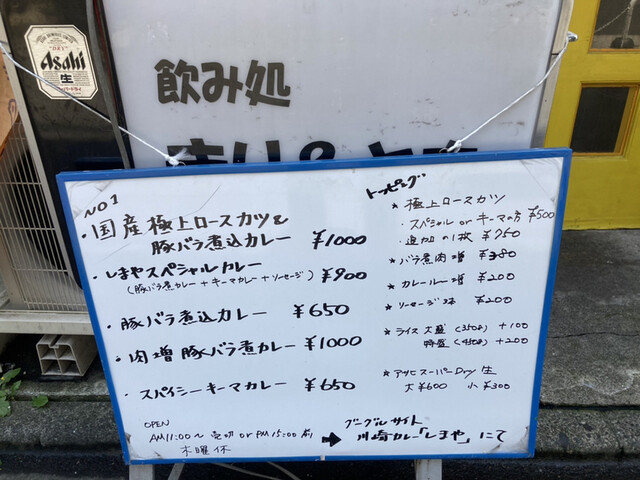 Asahi
生
飲み処
NO1
・国産極上ロースカツと
豚バラ煮込カレー ¥1000
・しまやスペシャルカレー ¥900
(豚バラ煮カレー+キーマカレー+ソーセージ)
・豚バラ煮込カレー ¥650
・肉増豚バラ煮カレー ¥1000
・スパイシーキーマカレー ¥650
OPEN
AM11:00〜売切 or PM15:00前
木曜休
トッピング
* 極上ロースカツ
・スペシャル or キーマの方 ¥500
・追加の1枚 ¥750
* バラ煮肉増 ¥380
* カレールー増 ¥200
* ソーセージ3本 ¥200
* ライス大盛(350g) +100
特盛(450g) +200
* アサヒスーパーDry 生
大¥600 小¥300
グーグルサイト
➡ 川崎カレー「しまや」にて